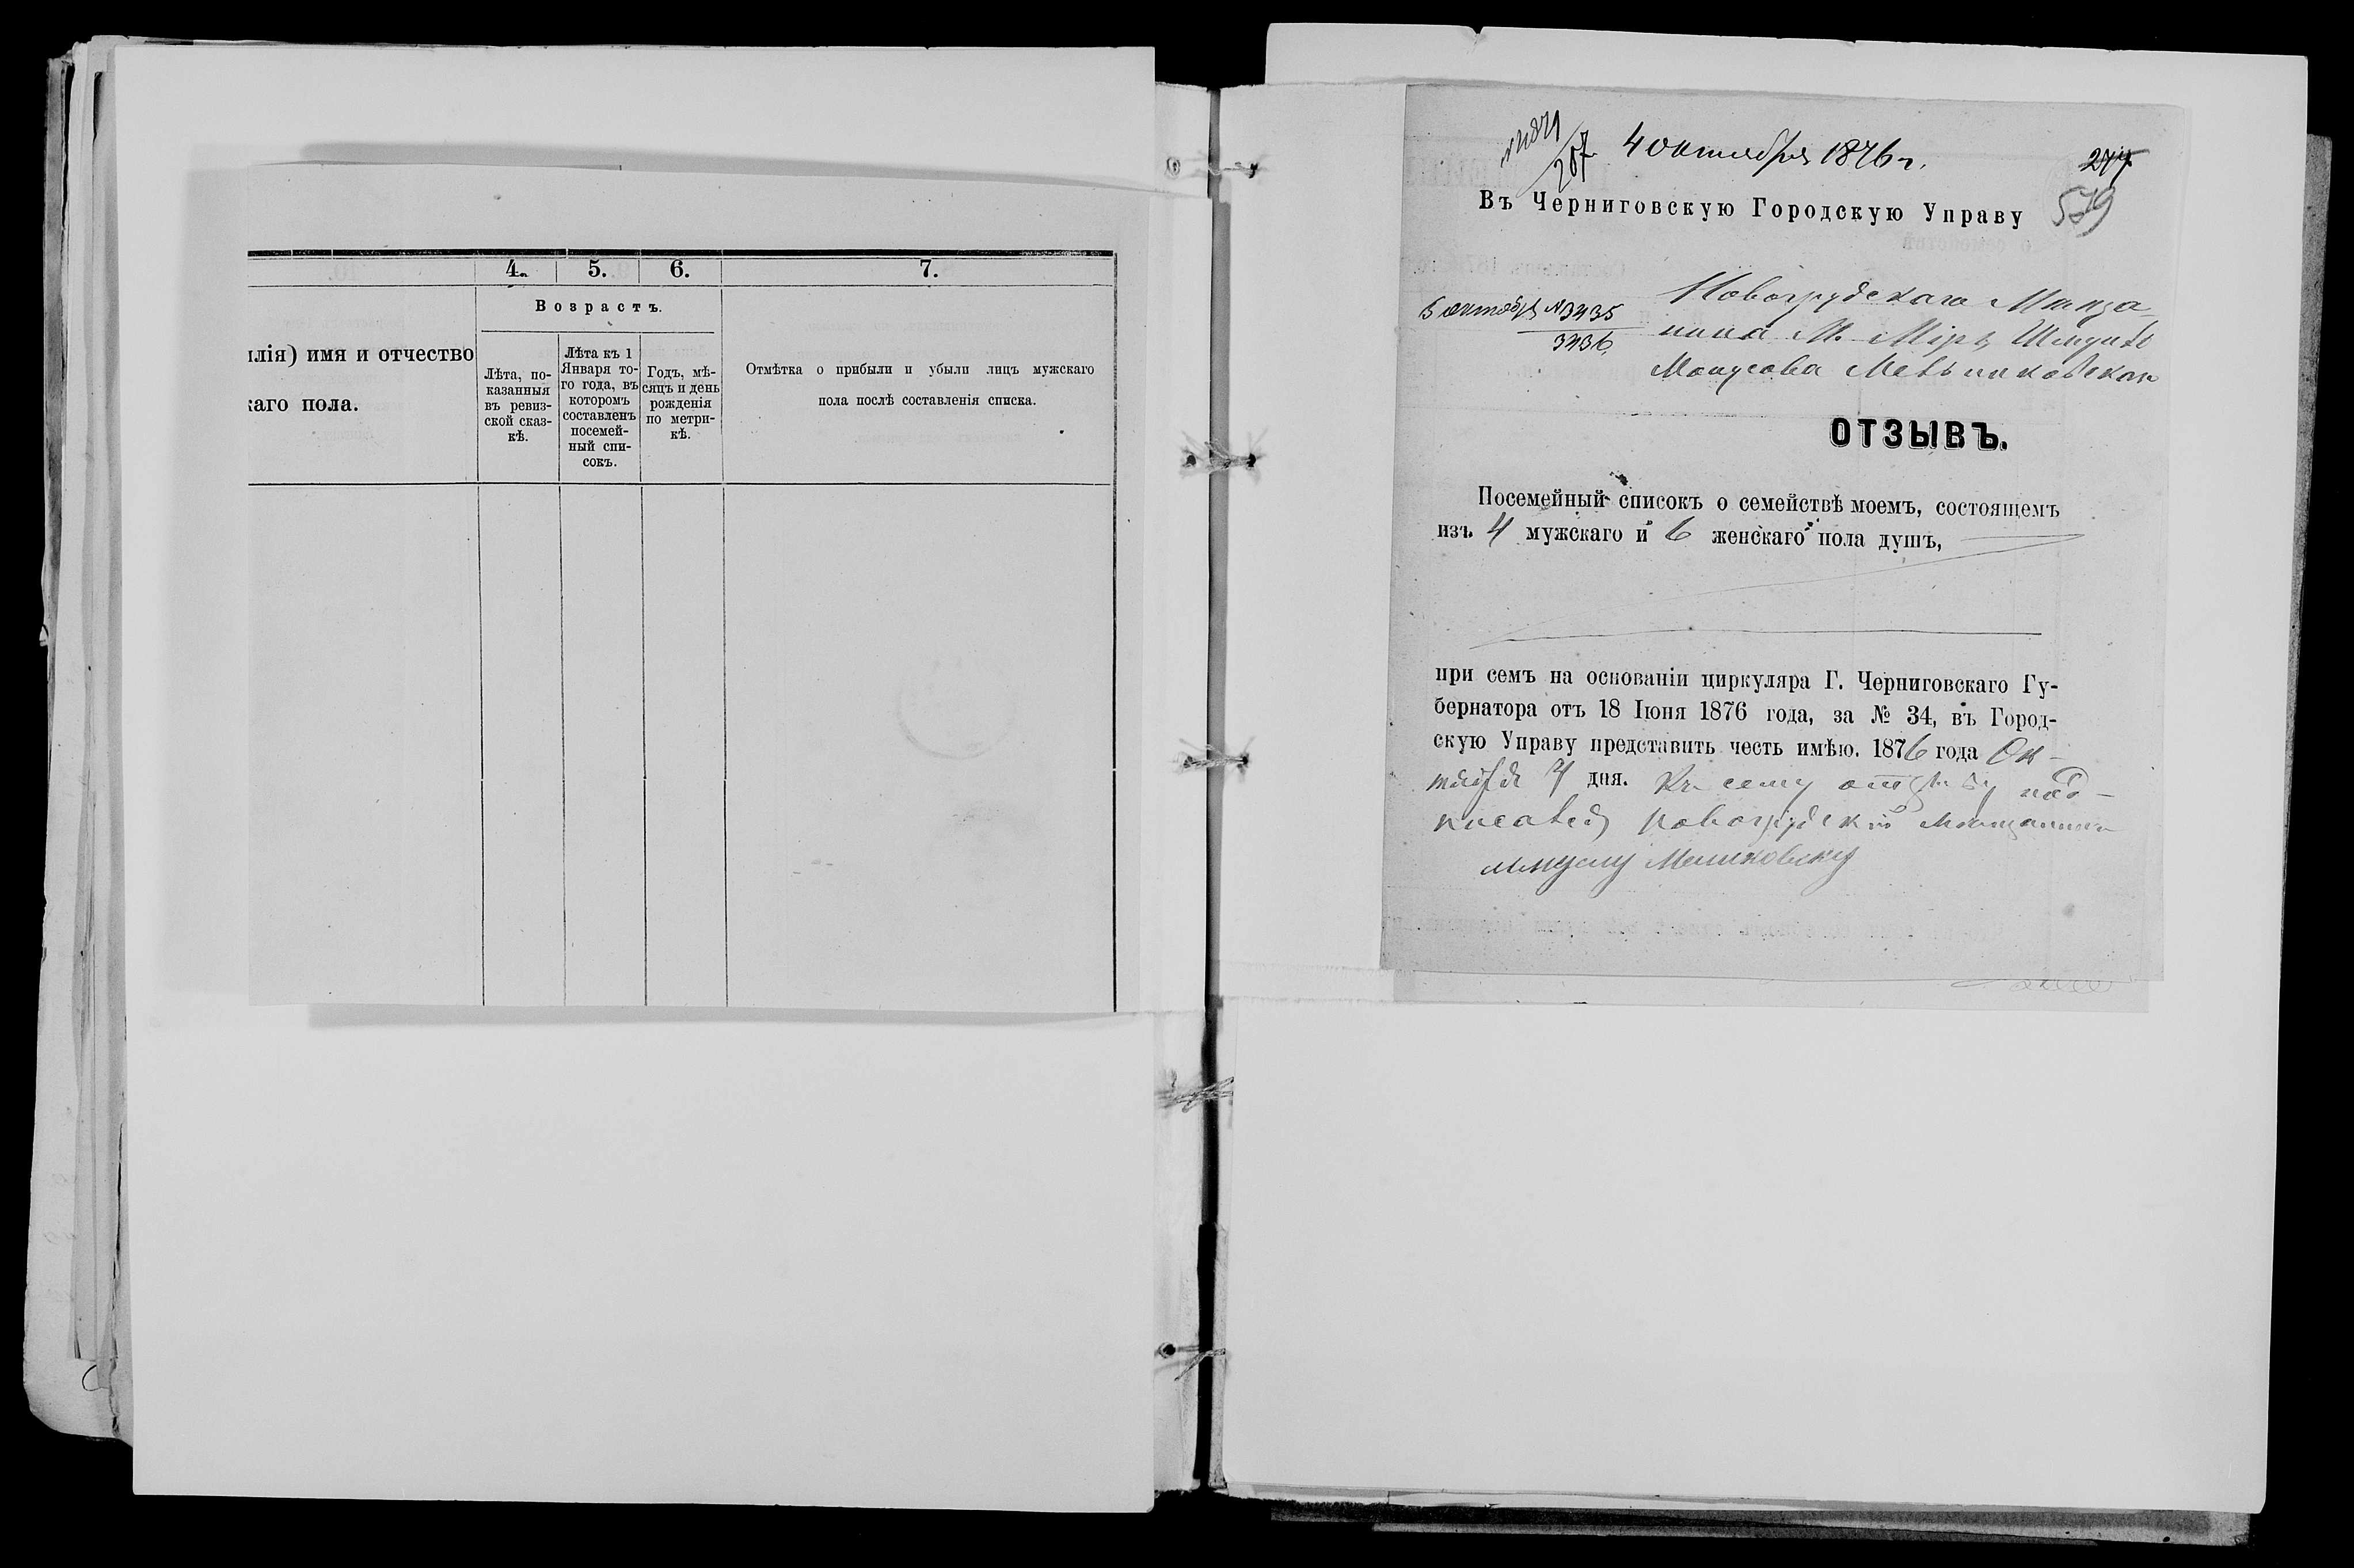 4. 5. 6. 7.
Возрастъ.
илія) имя и отчество
каго пола.
Лѣта, по-
казанныя
въ ревиз-
ской сказ-
кѣ.
Лѣта къ 1
Января то-
го года, въ
которомъ
составленъ
посемей-
ный спи-
сокъ.
Годъ, мѣ-
сяцъ и день
рожденія
по метри-
кѣ.
Отмѣтка о прибыли и убыли лицъ мужскаго
пола послѣ составленія списка.
207 4 октября 1876 г. 277
Въ Черниговскую Городскую Управу 579
5 октяб. № 3435
3436
Новогрудскаго Мѣща
нина М. Миръ
ОТЗЫВЪ.
Посемейный списокъ о семействѣ моемъ, состоящемъ
изъ 4 мужскаго и 6 женскаго пола душъ,
при семъ на основаніи циркуляра Г. Черниговскаго Гу-
бернатора отъ 18 Іюня 1876 года, за № 34, въ Город-
скую Управу представить честь имѣю. 1876 года Ок-
тября 4 дня. Къ сему отзыву под-
писался новогрудскій мѣщанинъ